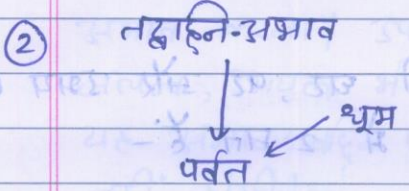 ② तद्वह्नि-अभाव
धूम
पर्वत